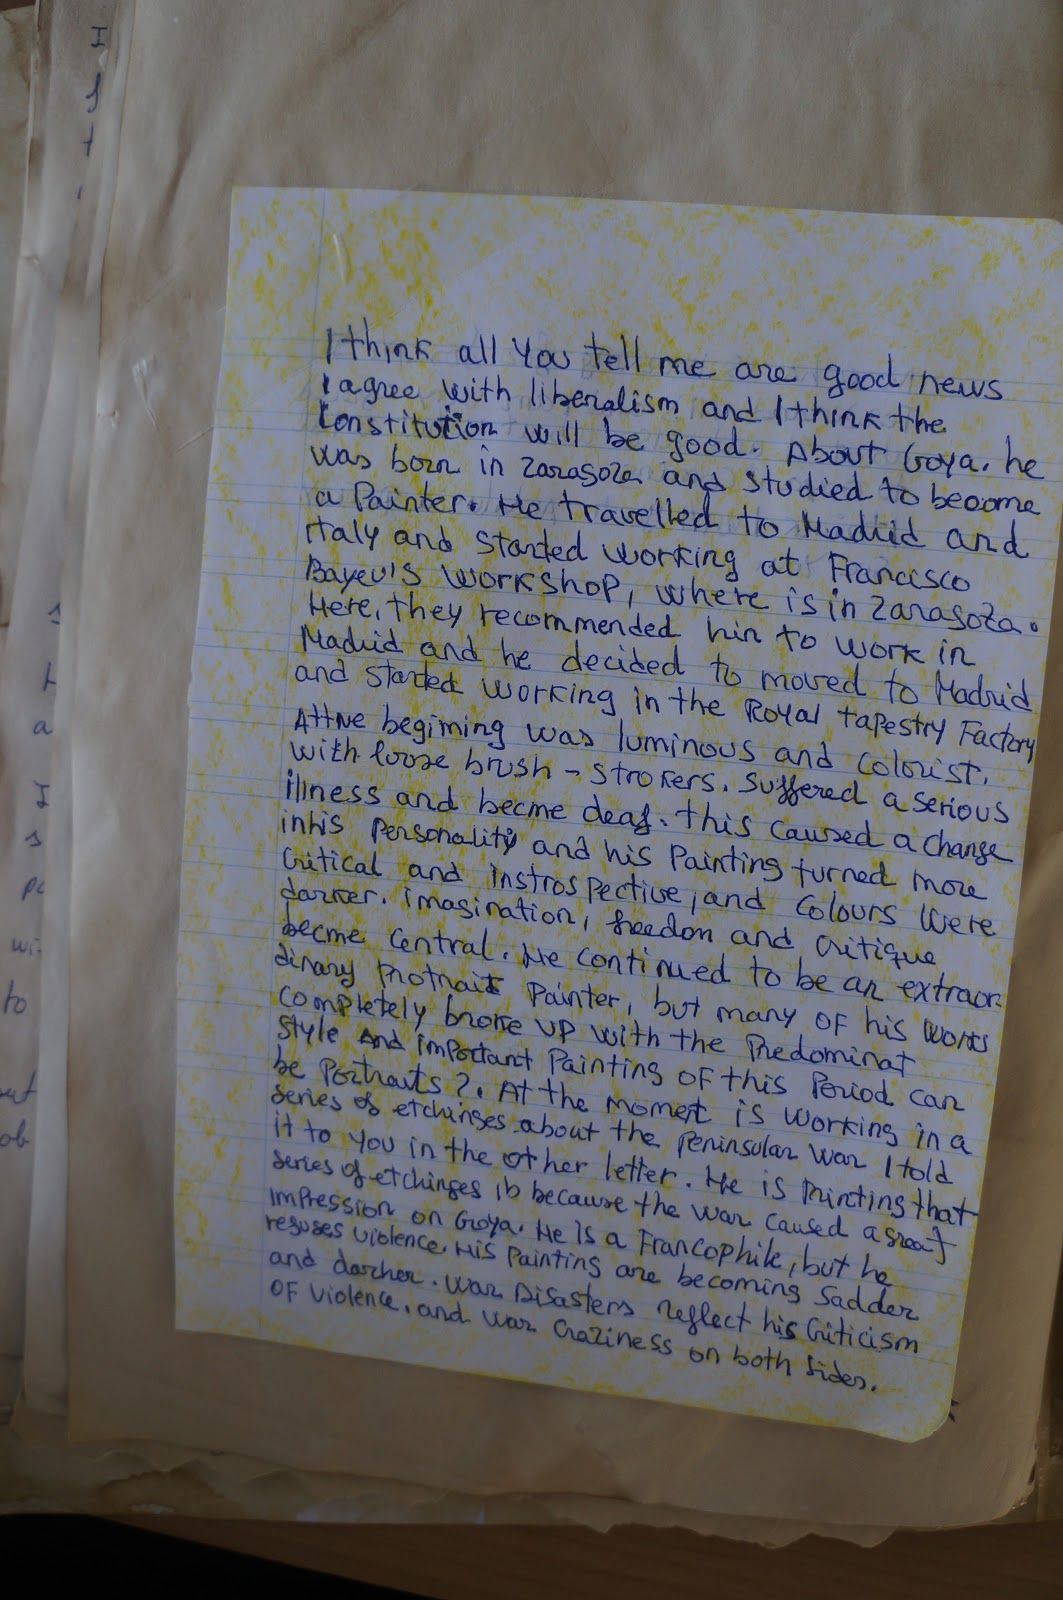 I think all You tell me are good news
I agree with liberalism and I think the
Constitution will be good. About Goya, he
was born in Zaragoza and studied to become
a Painter. He travelled to Madrid and
Italy and started working at Francisco
Bayeu's workshop, where is in Zaragoza.
Here, they recommended him to work in
Madrid and he decided to moved to Madrid
and started working in the Royal tapestry Factory
At the begiming was luminous and colorist,
with loose brush-strokers. Suffered a serious
illness and becme deaf. This caused a change
in his Personality and his Painting turned more
Critical and instrospective, and colours were
darker. imagination, freedom and critique
becme central. He continued to be an extraor-
dinary Protrait Painter, but many of his works
completely broke up with the Predominat
Style And important Painting of this Period can
be Portraits ?. At the moment is working in a
series of etchings about the Peninsular War I told
it to you in the other letter. He is Printing that
series of etchinges is because the war caused a great
impression on Goya. He Is a Francophile, but he
refuses violence. His Painting are becoming Sadder
and darker. War Disasters reflect his Criticism
OF violence, and war craziness on both Sides.
I
t
s
a
I
s
to